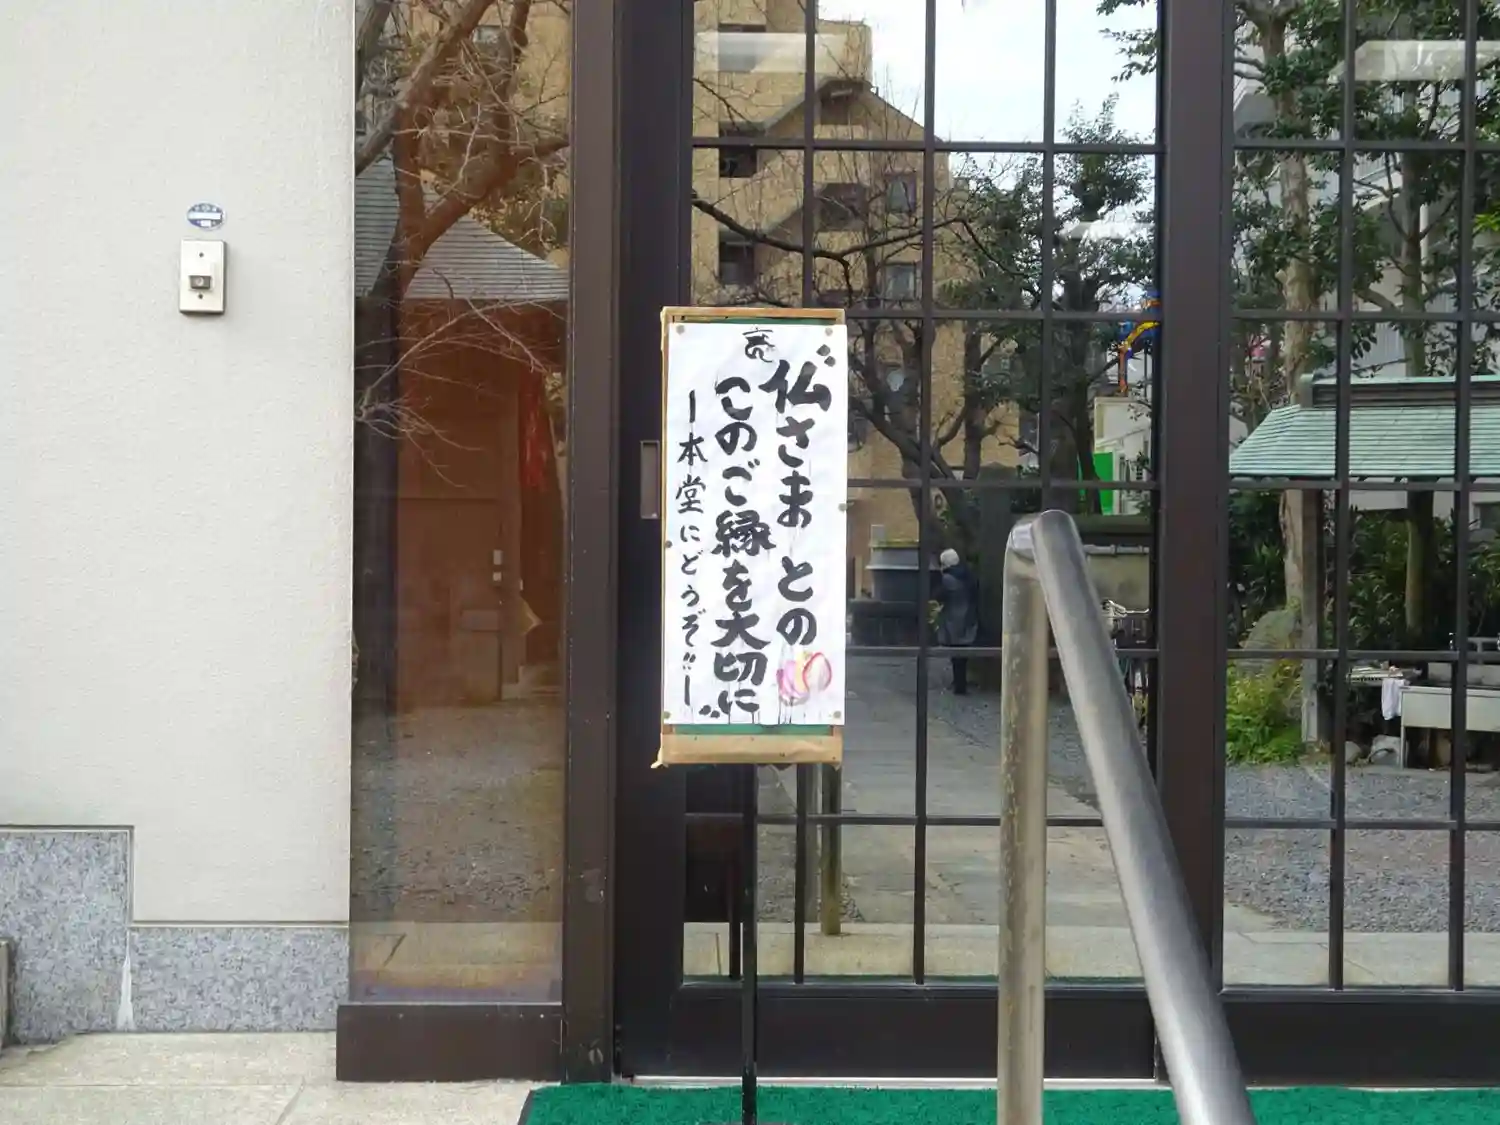 〝仏さまとの
このご縁を大切に〟
ー本堂にどうぞ!!ー